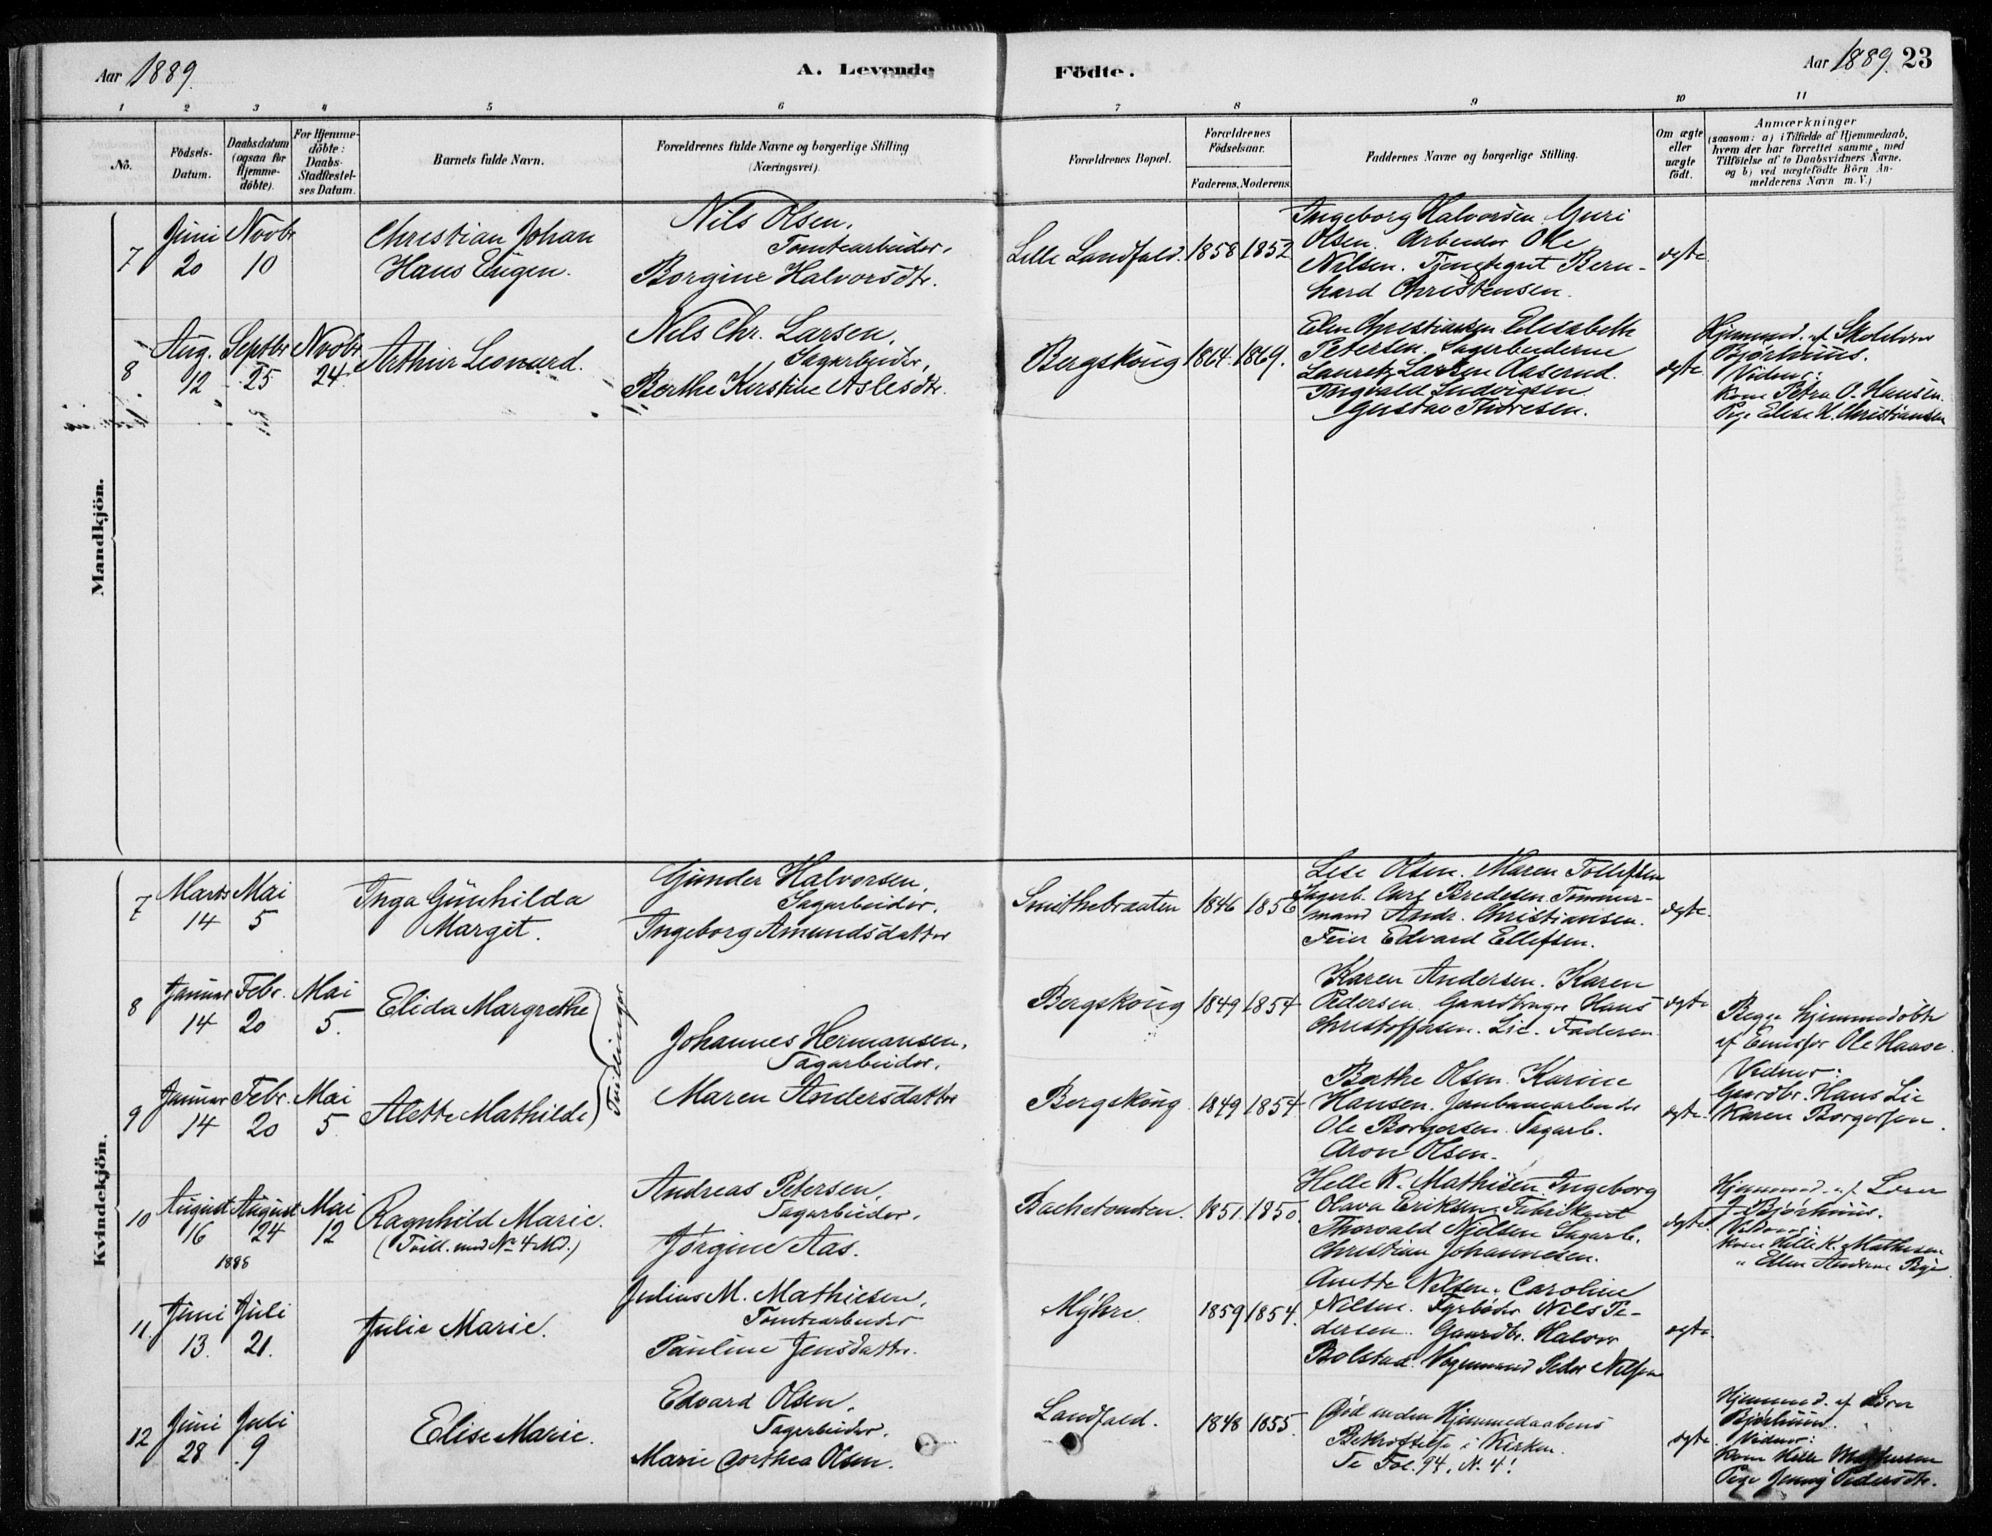 Aar 1889.
A. Levende
Födte.
Aar 1889. 23
1 2 3 4 5 6 7 8 9 10 11
No.
Födsels-Datum.
Daabsdatum (ogsaa for Hjemme-döbte).
For Hjemme-döbte: Daabs-Stadfæstel-ses Datum.
Barnets fulde Navn.
Forældrenes fulde Navne og borgerlige Stilling (Næringsvei)
Forældrenes Bopæl.
Forældrenes Födselsaar.
Faderens. Moderens.
Faddernes Navne og borgerlige Stilling.
Om ægte eller uægte födt.
Anmærkninger
(saasom: a) i Tilfælde af Hjemmedaab,
hvem der har forrettet samme, med
Tilföielse af to Daabsvidners Navne,
og b) ved uægtefödte Börn An-
melderens Navn m. V.)
Mandkjön.
7
Juni 20
Novbr 10
Christian Johan
Hans Eugen.
Nils Olsen,
Tomtearbeider,
Borgine Halvorsdtr.
Lille Landfald.
1858 1852
Ingeborg Halvorsen Guri
Olsen. Arbeider Ole
Nilsen. Tjenestegut Bern-
hard Christensen.
ægte
8
Aug. 12
Septbr 25
Novbr 24
Arthur Leonard.
Nils Chr. Larsen,
Sagarbeider,
Berthe Kirstine Aslesdtr.
Bergskoug
1864. 1869.
Elen Christiansen Elisabeth
Petersen. Sagarbeiderne
Lauretz Larsen Aaserud.
Ingvald Ludvigsen
Gustav Thoresen.
ægte
Hjemmed. af Skolelærer
Björhuus.
Vidner:
Kone Petra O. Hansen.
Pige Elise K. Christiansen
Kvindekjön.
7
Marts 14
Mai 5
Inga Günhilda
Margit.
Gunder Halvorsen,
Sagarbeider,
Ingeborg Amundsdatter
Smithebraaten
1846 1856
Lise Olsen. Maren Tollefsen
Sagarb. Carl Bredesen Tømmer-
mand Andr. Christiansen.
Feier Edvard Ellefsen.
ægte.
8
Januar 14
Febr. 20
Mai 5.
Elida Margrethe
Tvillinger
Johannes Hermansen,
Sagarbeider,
Maren Andersdatter
Bergskoug
1849 1854
Karen Andersen. Karen
Pedersen. Gaardbruger Hans
Christoffersen. Lie. Faderen
ægte
Begge Hjemmedøbte
af Emissær Ole Haase.
Vidner:
Gaardbr. Hans Lie
Karen Borgersen.
9
Januar 14
Febr. 20
Mai 5
Alette Mathilde
Bergskoug
1849 1854
Berthe Olsen. Karine
Hansen. Jernbanearbeider
Ole Borgersen. Sagarb.
Aron Olsen.
ægte.
10
August 16
August 24
1888
Mai 12
Ragnhild Marie.
(Tvill. med No 4 Md.)
Andreas Petersen,
Sagarbeider,
Jørgine Aas.
Bachetoudten.
1851. 1850.
Helle K. Mathisen Ingeborg
Olava Eriksen. Fabrikant
Thorvald Nielsen Sagarb.
Christian Johannesen.
ægte.
Hjemmed. af Lærer
Björhuus.
Vidner:
Kone Helle K. Mathisen
" Ellen Andrine Pige
11.
Juni 13.
Juli 21.
Julie Marie.
Julius M. Mathiesen,
Tomtearbeider
Pauline Jensdatter.
Myhre.
1859 1854.
Anette Nilsen. Caroline
Nilsen. Fyrbøder Nils Pe-
dersen. Gaardbr. Halvor
Bolstad. Vognmand Peder Nilsen
ægte.
12
Juni 28
Juli 9
Elise Marie.
Edvard Olsen,
Sagarbeider.
Marie Dorthea Olsen.
Landfald.
1848 1855.
Død inden Hjemmedaabens
Bekræftelse i Kirken.
Se Fol. 94, N. 4!
ægte.
Hjemmed. af Lærer
Björhuus.
Vidner:
Kone Helle Mathisen
Pige Jenny Pedersdtr.